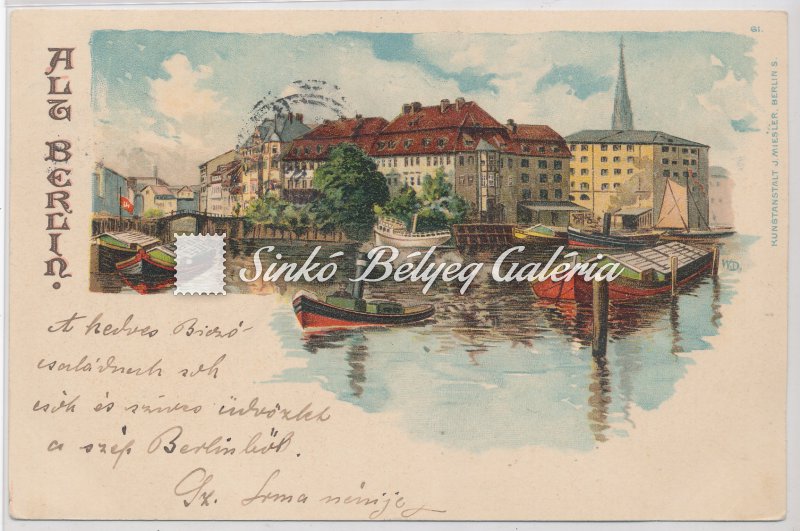 ALT BERLIN.
61.
KUNSTANSTALT J. MIESLER, BERLIN S.
Sinkó Bélyeg Galéria
A kedves Biczó
családnak sok
csók és szíves üdvözlet
a szép Berlinből.
Sz. Irma nénije